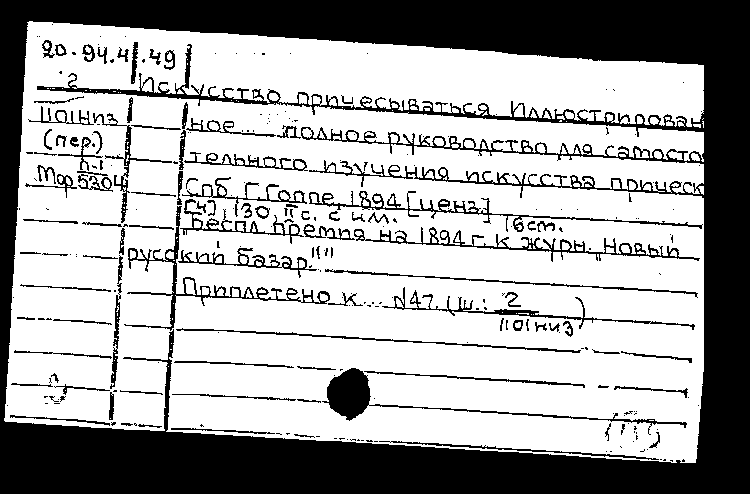 20.94.4.49
2 Искусство причесываться Иллюстрирован
1101низ ное... полное руководство для самосто
(пер.) тельного изучения искусства прическ
Мфр П-1 5304 Спб, Г. Гоппе, 1894 [ценз]
[4], 130, II с. с илл. 16 см.
"Беспл премия на 1894 г. к журн. „Новый
русский базар."""
Приплетено к... N47. (ш.: 2
1101низ)